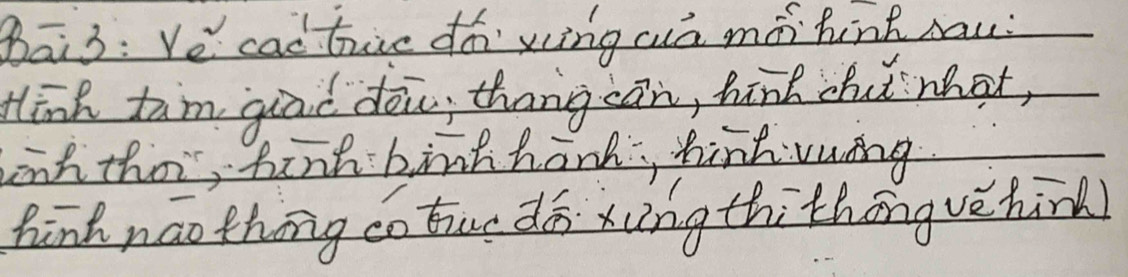 Bài 3: Vẽ các trục đối xứng của mỗi hình sau:
Hình tam giác đều, thang cân, hình chữ nhật,
hình thoi, hình bình hành, hình vuông
hình nào không có trục đối xứng thì không vẽ hình)